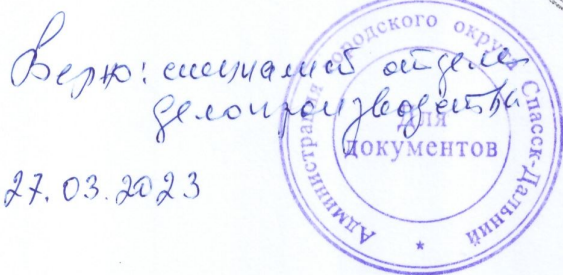 Верно: специалист отдела
делопроизводства
27.03.2023
Администрация городского округа Спасск-Дальний
Для
документов
*